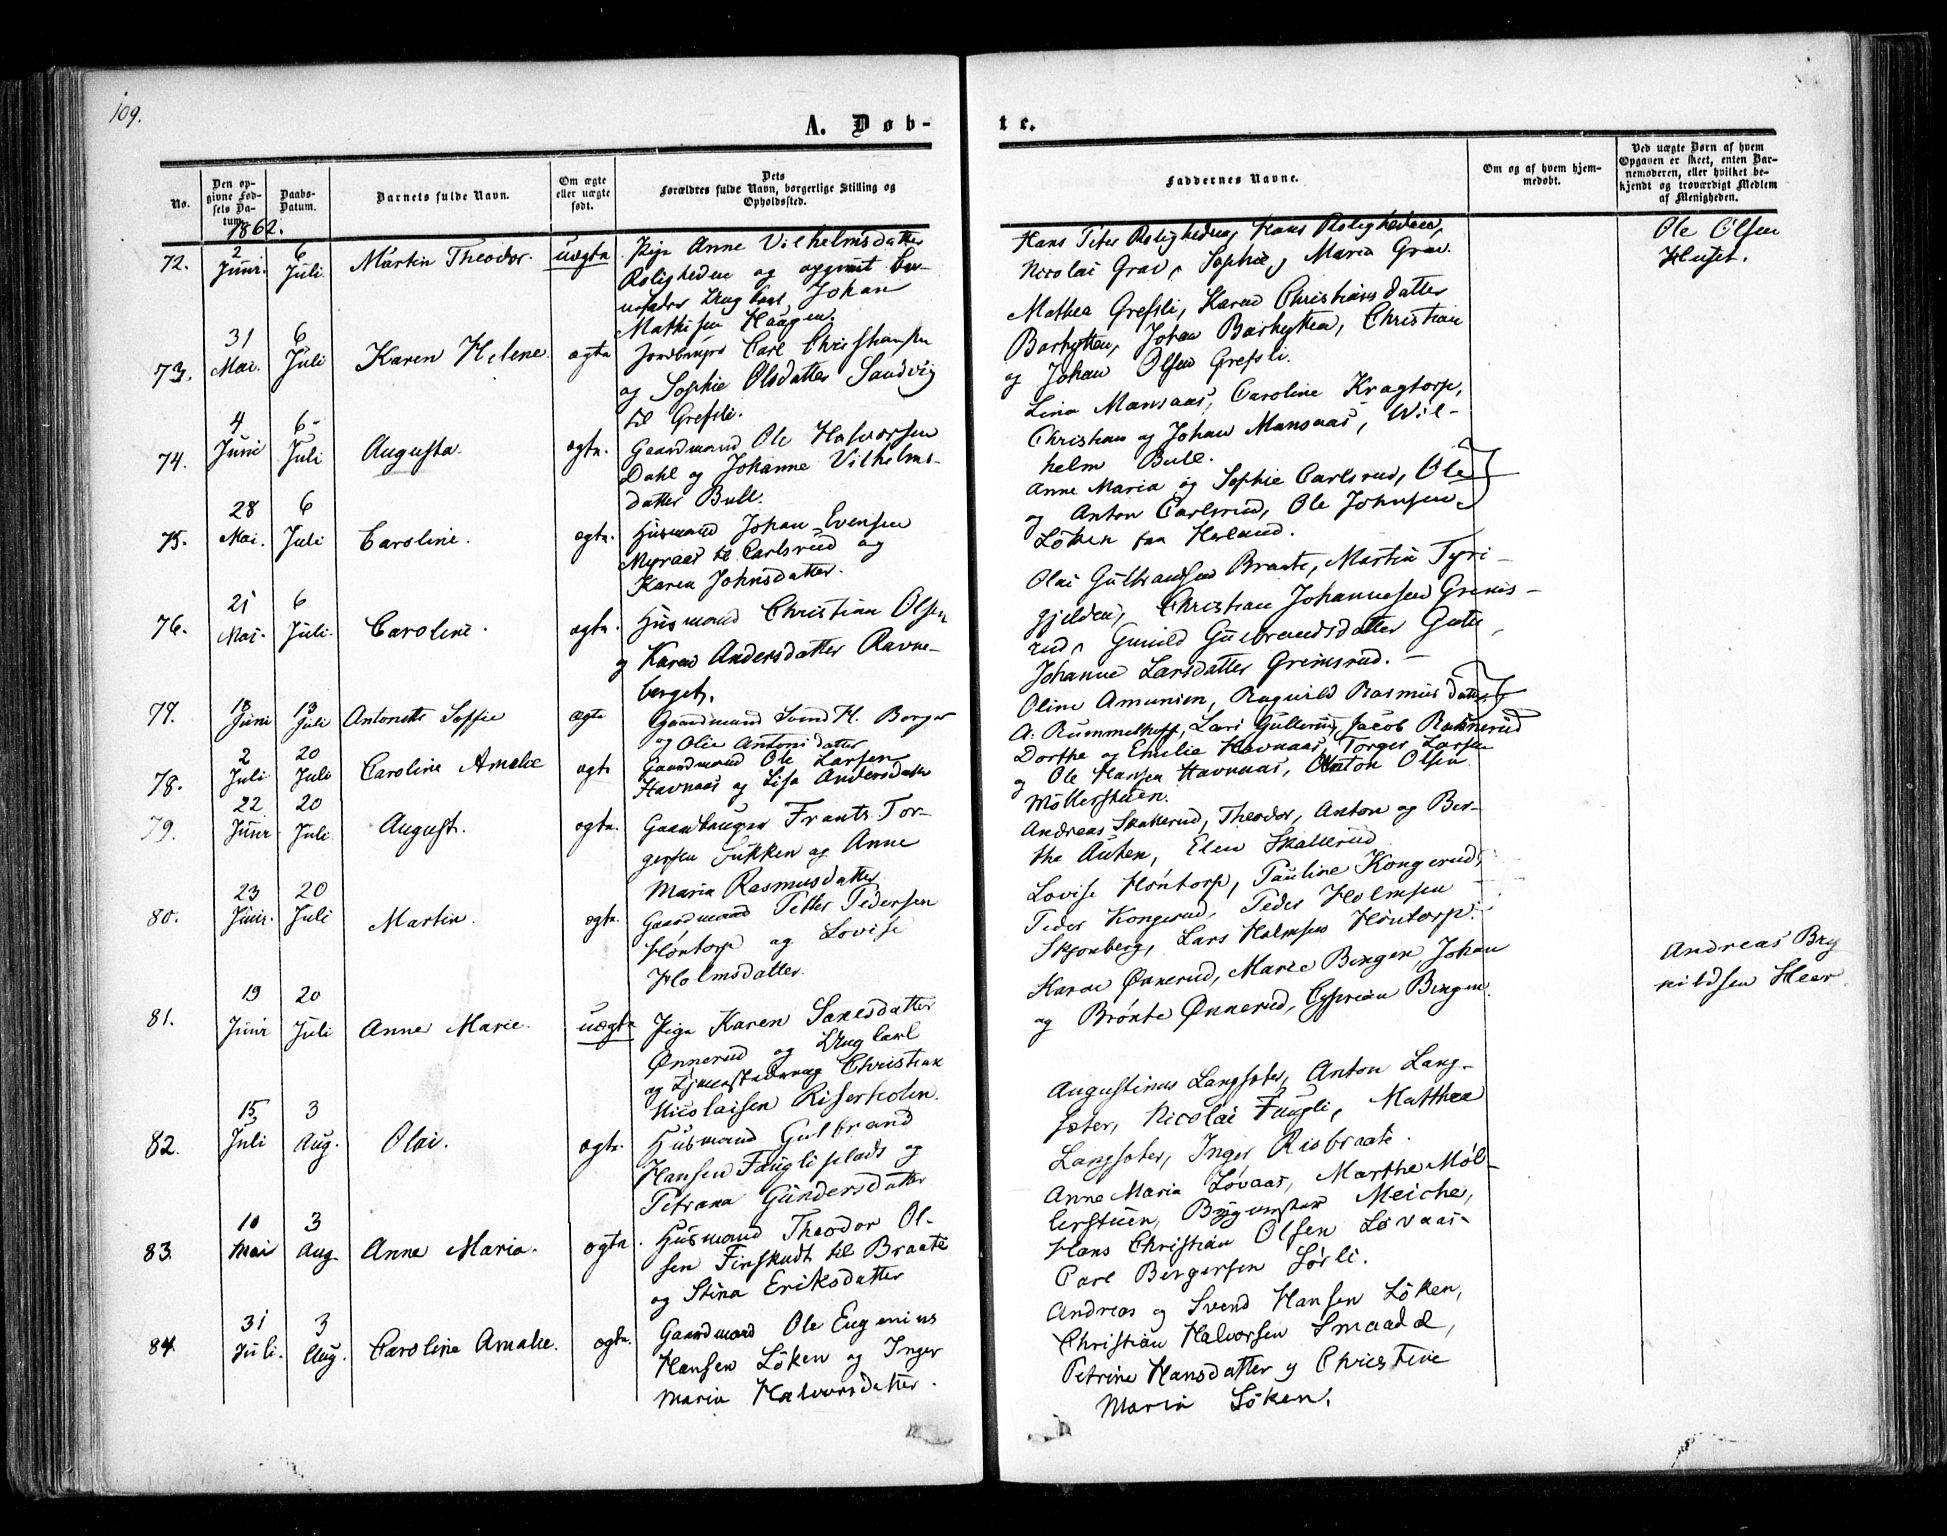 109.
A. Døb-
te.
No.
Den op-
givne Fød-
sels Da-
tum.
Daabs-
Datum.
Barnets fulde Navn.
Om ægte
eller uægte
født.
Dets
Forældres fulde Navn, borgerlige Stilling og
Opholdssted.
Faddernes Navne.
Om og af hvem hjem-
medøbt.
Ved uægte Børn af hvem
Opgaven er skeet, enten Bar-
nemoderen, eller hvilket be-
kjendt og troværdigt Medlem
af Menigheden.
1862.
72.
2 Juni
6 Juli
Martin Theodor.
uægte
Pige Anne Vilhelmsdatter
Roligheden og opgivet Bar-
nefader Ungkarl Johan
Mathisen Haugen.
Hans Peter Roligheden, Hans Roligheden,
Nicolai Grav, Sophie, Maria Grav.
Ole Olsen
Huset.
73.
31 Mai.
6 Juli
Karen Helene.
ægte
Jordbruger Carl Christiansen
og Sophie Olsdatter Sandvig
til Grefsli.
Mathea Grefsli, Karen Christiansdatter
Barhytten, Johan Barhytten, Christian
og Johan Olsen Grefsli.
74.
4 Juni
6 Juli
Augusta.
ægte.
Gaardmand Ole Halvorsen
Dahl og Johanne Vilhelms-
datter Bull.
Lina Mansaas, Caroline Kragtorp,
Christian og Johan Mansaas, Wil-
helm Bull.
75.
28 Mai.
6 Juli
Caroline.
ægte.
Husmand Johan Evensen
Myraas til Carlsrud og
Karen Johnsdatter.
Anne Maria og Sophie Carlsrud, Ole
og Anton Carlsrud, Ole Johnsen
Løken fra Høland.
76.
21 Mai.
6 Juli.
Caroline.
ægte.
Husmand Christian Olsen
og Karen Andersdatter Ravne-
berget.
Olai Gulbrandsen Braate, Martin Tyri-
gjelden, Christian Johannesen Grims-
rud, Gunild Gulbrandsdatter
Johanne Larsdatter Grimsrud.
77.
18 Juni
13 Juli
Antonette Soffie
ægte
Gaardmand Svend H. Berger
og Olie Antonidatter
Oline Amunsen, Ragnild Rasmusdatter
A. Rummelhoff, Lars Gullerud, Jacob Rakkerud
78.
2 Juli
20 Juli
Caroline Amalie
ægte
Gaardmand Ole Larsen
Havnaas og Lisa Andersdatter
Dorthe og Emilie Havnaas, Torger Larsen
og Ole Hansen Havnaas, Anton Olsen
Møllerstuen.
79.
22 Juni
20 Juli
August.
ægte.
Gaardbruger Frants Tor-
gersen Sukken og Anne
Maria Rasmusdatter
Andreas Skallerud, Theodor, Anton og Ber-
the Auten, Elen Skallerud
80.
23 Juni.
20 Juli
Martin.
ægte.
Gaardmand Petter Pedersen
Høntorp og Lovise
Holmsdatter.
Lovise Høntorp, Pauline Kongerud,
Peder Kongerud, Peder Holmsen
Skjønberg, Lars Holmsen Høntorp.
81.
19 Juni
20 Juli
Anne Marie.
uægte
Pige Karen Sanesdatter
Ønnerud og Ungkarl
og Christian
Nicolaisen Riserholen.
Karen Ønnerud, Marie Bingen, Johan
og Brønte Ønnerud, Cyprian Bingen.
Andreas Bry
nildsen Heer.
82.
15 Juli
3 Aug.
Olai.
ægte.
Husmand Gulbrand
Hansen Faugliplads og
Petrana Gundersdatter
Augustinus Langsæter, Anton Lang-
sæter, Nicolai Faugli, Matthea
Langsæter, Inger Risbraate.
83.
10 Mai
3 Aug.
Anne Maria.
ægte.
Husmand Theodor Ol-
sen Finskudt til Braate
og Stina Eriksdatter
Anne Maria Løvaas, Marthe Møl-
lerstuen, Bygmester Meiche,
Hans Christian Olsen Løvaas-
Carl Bergersen Sørli.
84.
31 Juli.
3 Aug.
Caroline Amalie.
ægte.
Gaardmand Ole Eugenius
Hansen Løken og Inger
Maria Halvorsdatter.
Andreas og Svend Hansen Løken,
Christian Halvorsen Smaadal,
Petrine Hansdatter og Christine
Maria Løken.